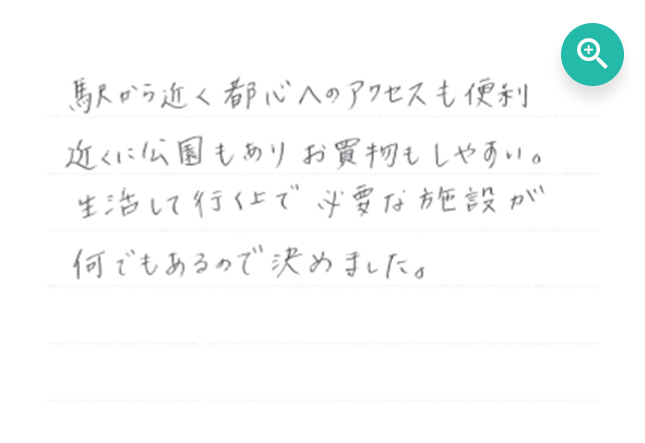 駅から近く都心へのアクセスも便利
近くに公園もあり お買物もしやすい。
生活して行く上で 必要な施設が
何でもあるので決めました。